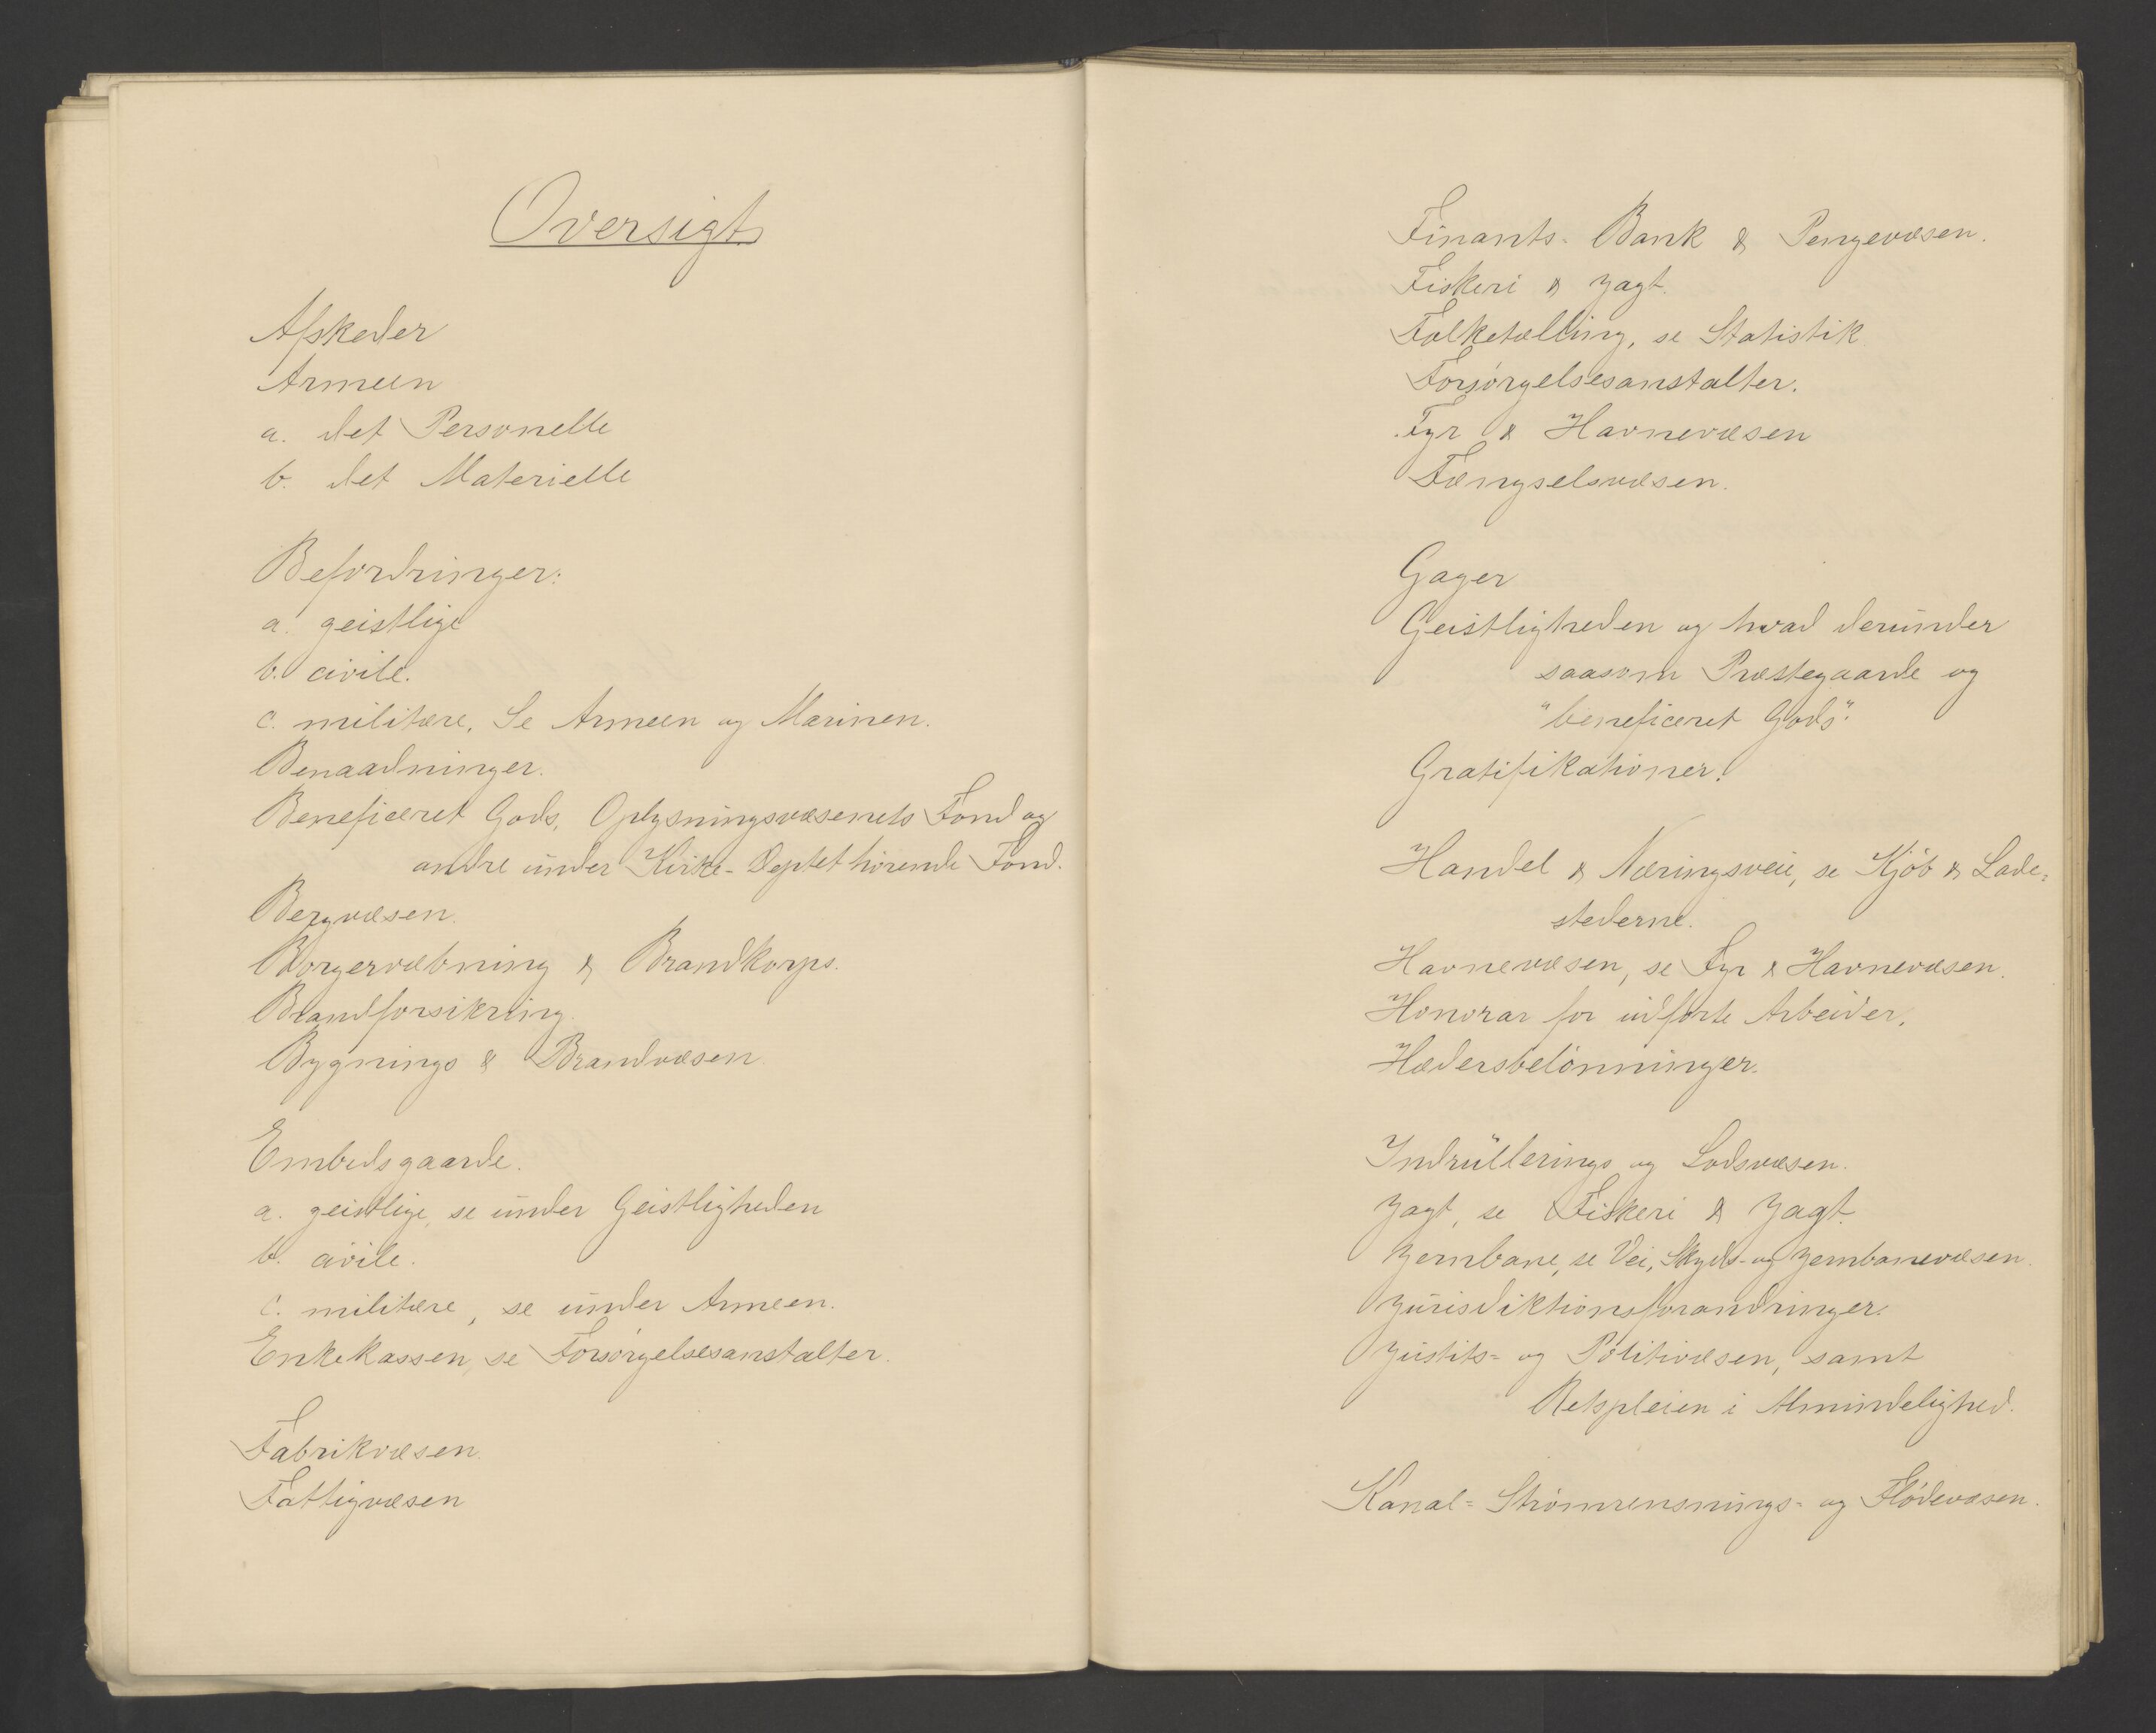 Oversigt
Afskeder
Armeen
a. det Personelle
b. det Materielle
Befordringer:
a. geistlige
b. civile.
c. militære, Se Armeen og Marinen.
Benaadninger.
Beneficeret Gods, Oplysningsvæsenets Fond og
andre under Kirke-Deptet hørende Fond.
Bergvæsen.
Borgervæbning & Brandkorps.
Brandforsikring.
Bygnings & Brandvæsen.
Embedsgaarde.
a. geistlige, se under Geistligheden
b. civile.
c. militære, se under Armeen.
Enkekassen, se Forsørgelsesanstalter.
Fabrikvæsen.
Fattigvæsen
Finants- Bank & Pengevæsen.
Fiskeri & Jagt.
Folketælling, se Statistik.
Forsørgelsesanstalter.
Fyr & Havnevæsen
Fængselsvæsen.
Gager
Geistligheden og hvad derunder
saasom Præstegaarde og
"beneficeret Gods".
Gratifikationer.
Handel & Næringsveie, se Kjøb & Lade=
stederne.
Havnevæsen, se Fyr & Havnevæsen.
Honorar for udførte Arbeider.
Hædersbelønninger.
Indrullerings og Lodsvæsen.
Jagt, se Fiskeri & Jagt.
Jernbane, se Vei, Skyds- og Jernbanevæsen.
Jurisdiktionsforandringer.
Justits= og Politivæsen, samt
Retspleien i Almindelighed.
Kanal= Strømrensnings= og Flødevæsen.